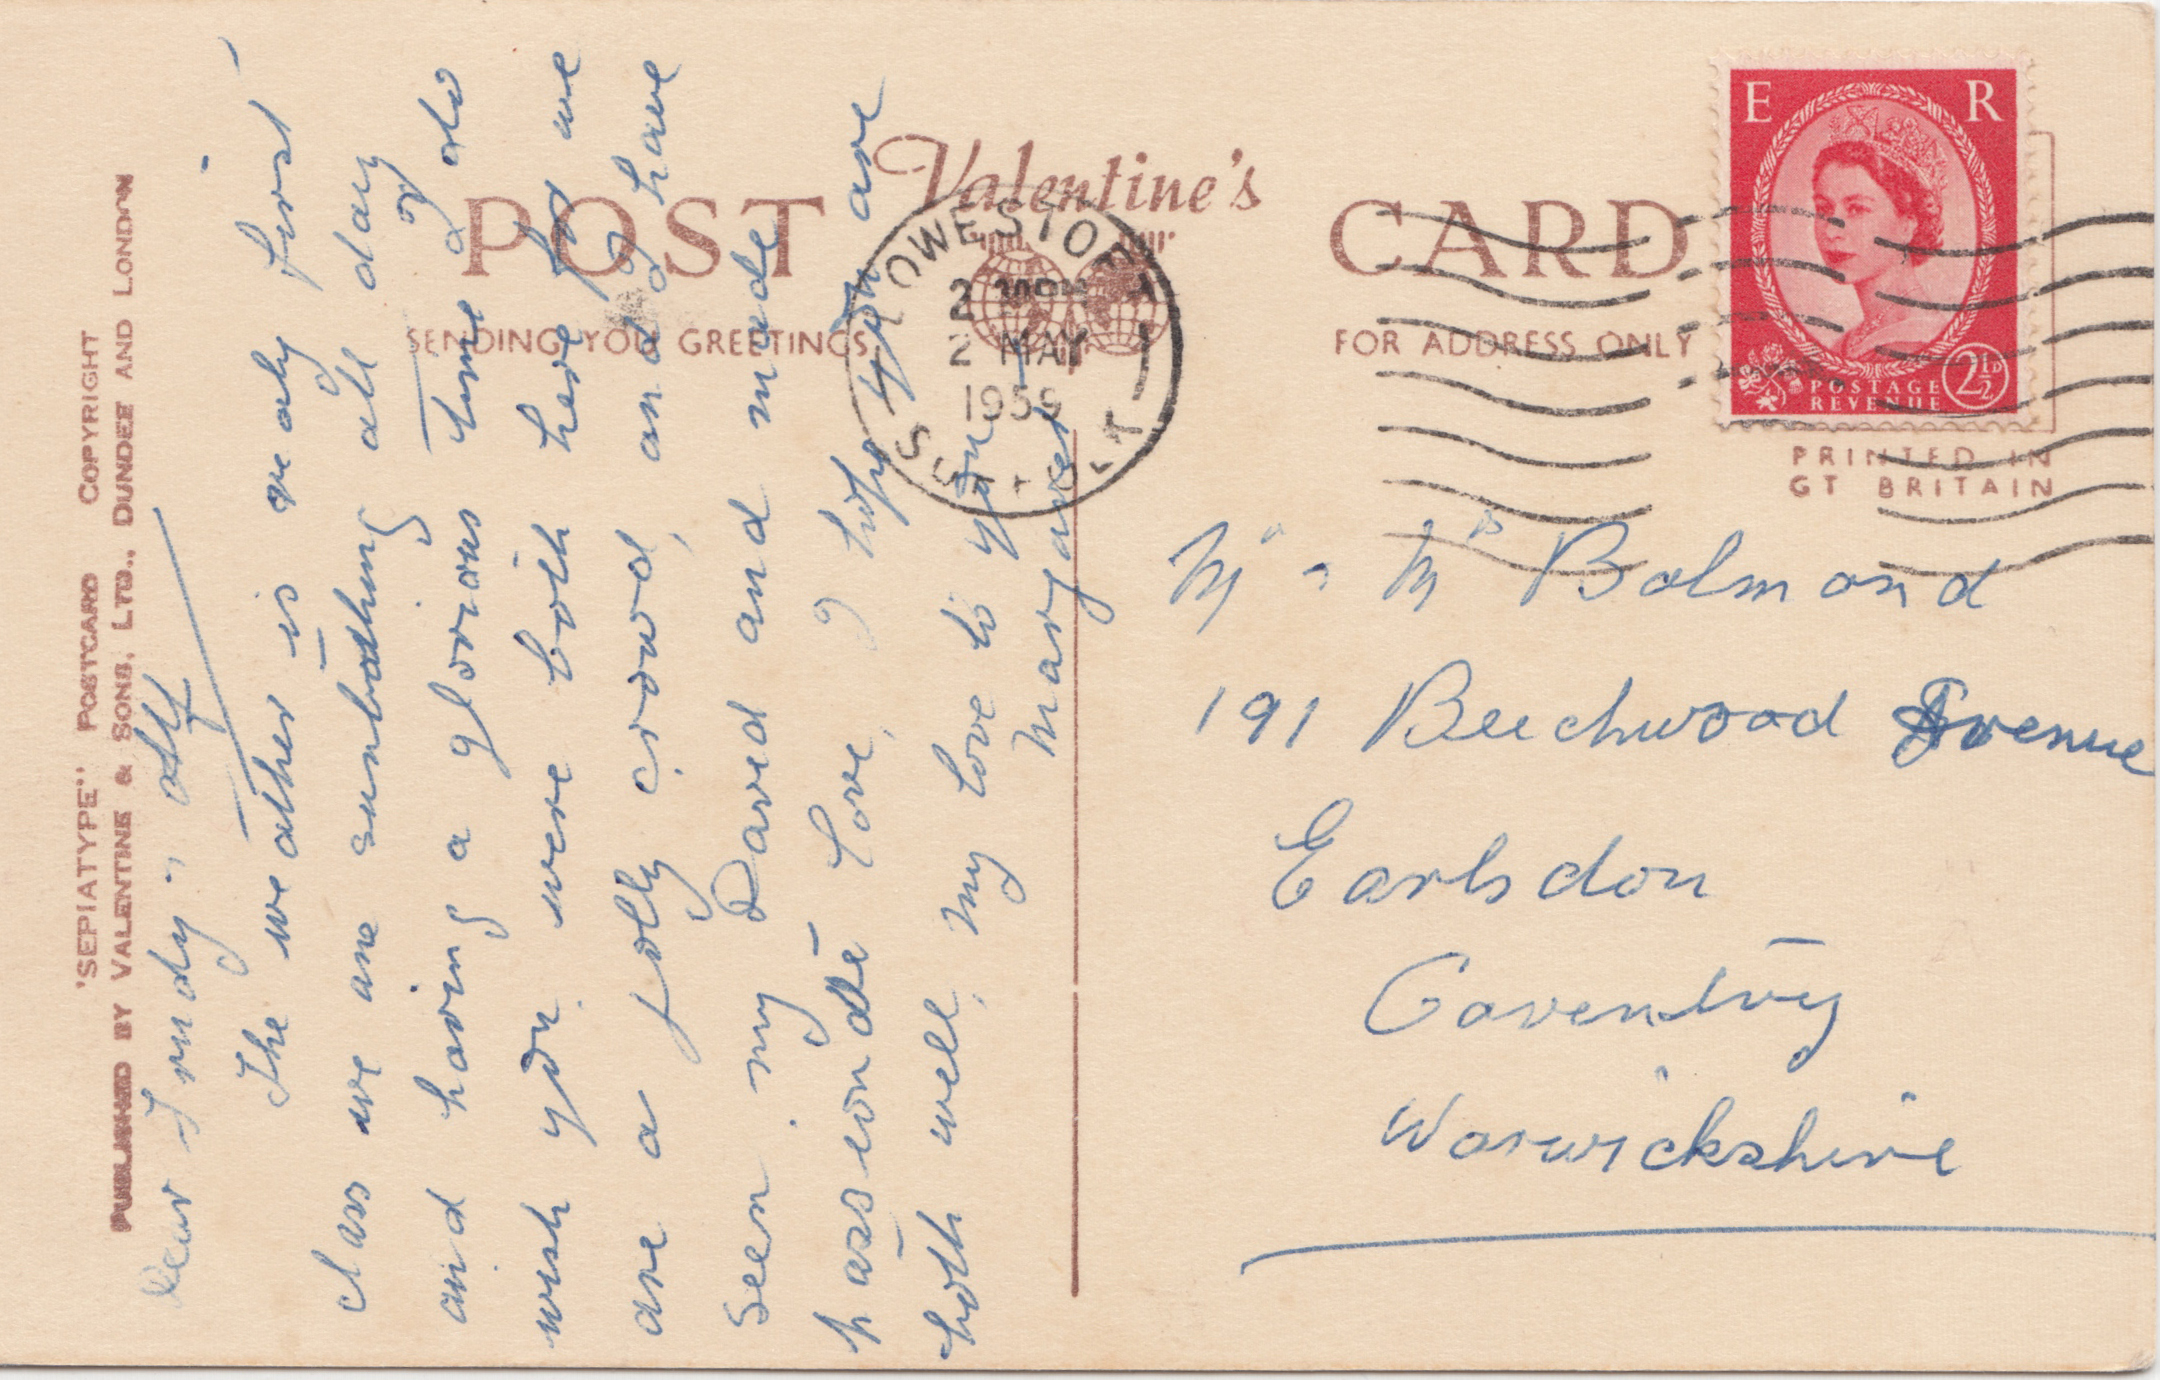 'SEPIATYPE" POSTCARD COPYRIGHT
PUBLISHED BY VALENTINE & SONS, LTD., DUNDEE AND LONDON
Dear Trudy " Alf
The weather is realy first
class we are sunbathing all day
and having a glorious time I do
wish you were both here for we
are a jolly crowd, and I have
seen my David and made
love, I hope you are
both well, my love to you
Margaret
POST Valentine's CARD
SENDING YOU GREETINGS
FOR ADDRESS ONLY
LOWESTOFT
2 MAY
195
E R
POSTAGE
REVENUE
2½D
PRINTED IN
GT BRITAIN
Mr & Mrs Balmond
191 Beechwood Avenue
Earlsdon
Coventry
Warwickshire